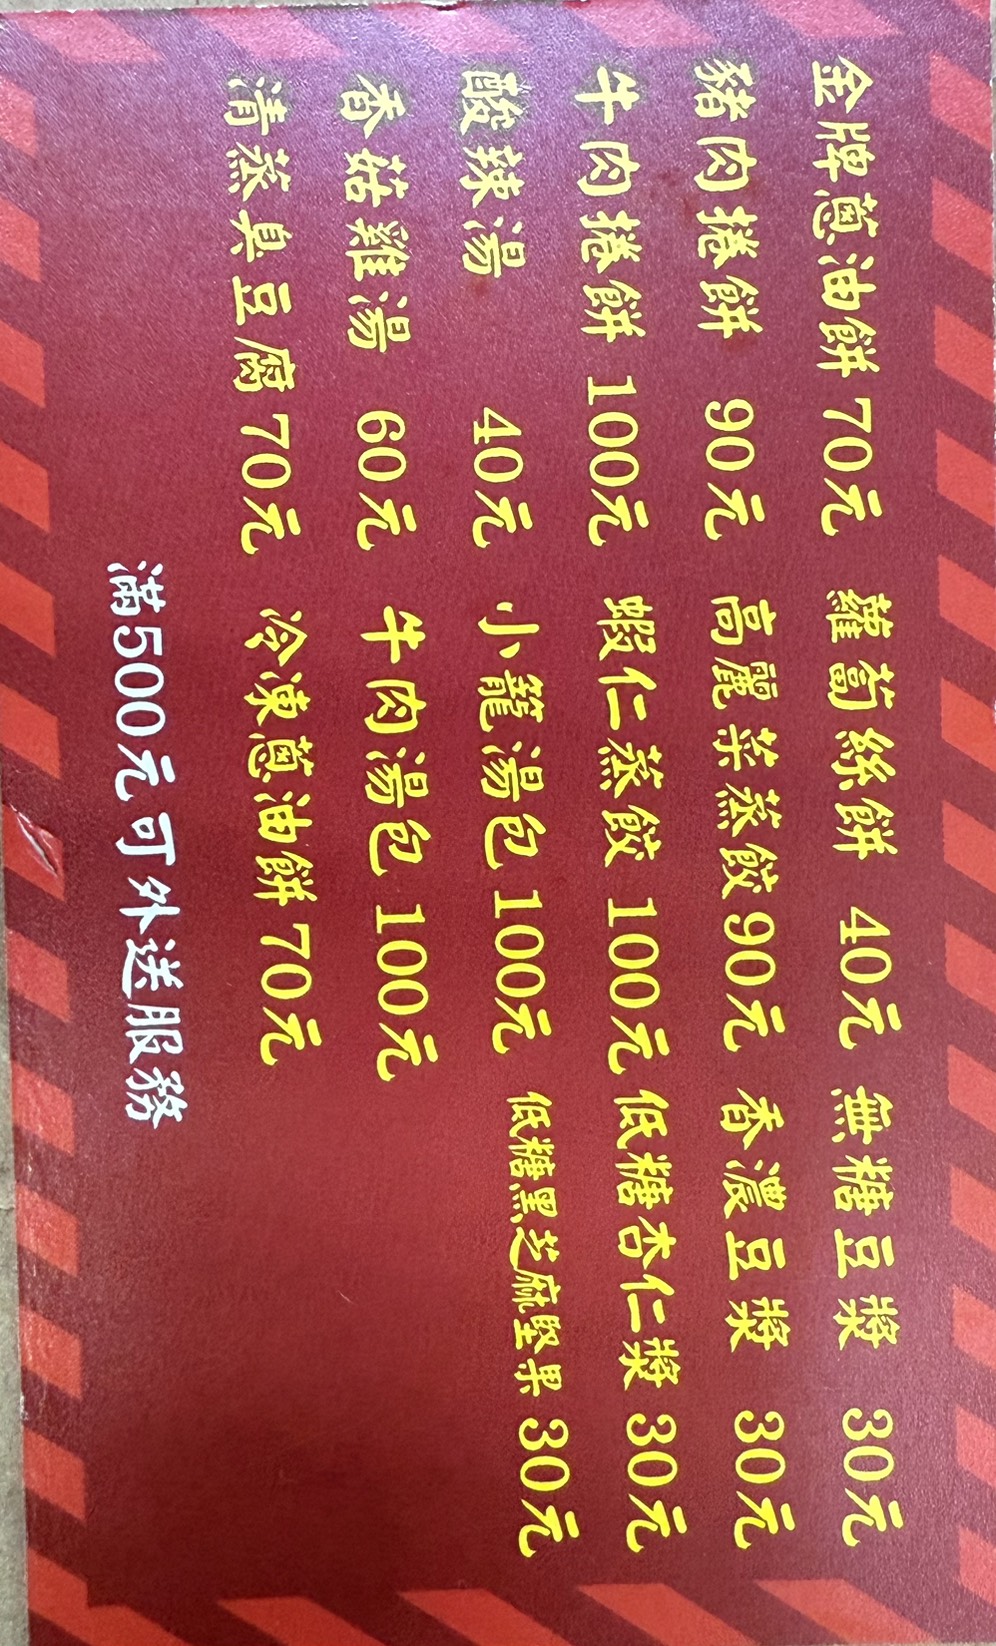 金牌蔥油餅 70元 蘿蔔絲餅 40元 無糖豆漿 30元
豬肉捲餅 90元 高麗菜蒸餃 90元 香濃豆漿 30元
牛肉捲餅 100元 蝦仁蒸餃 100元 低糖杏仁漿 30元
酸辣湯 40元 小籠湯包 100元 低糖黑芝麻堅果 30元
香菇雞湯 60元 牛肉湯包 100元
清蒸臭豆腐 70元 冷凍蔥油餅 70元
滿500元可外送服務